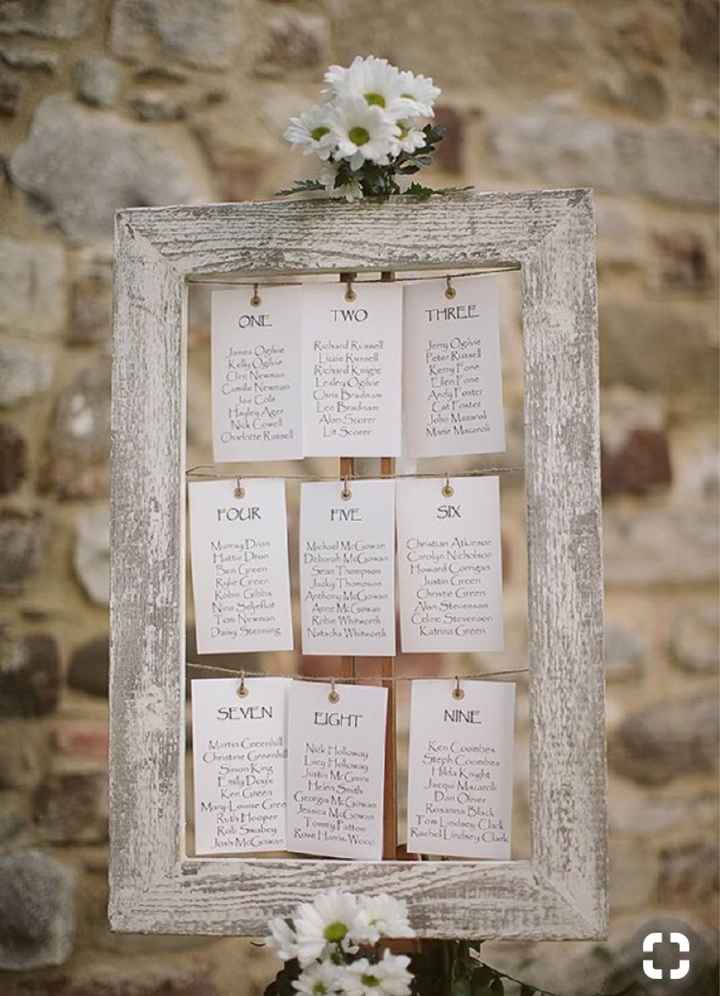 ONE
James Ogilvie
Kelly Ogilvie
Clive Newman
Camilla Newman
Joe Cole
Hayley Ager
Nick Cowell
Charlotte Russell
TWO
Richard Russell
Lizzie Russell
Richard Knight
Lesley Ogilvie
Chris Bradnam
Leo Bradnam
Alan Scorer
Scorer
THREE
Jerry Ogilvie
Peter Russell
Kerry Fone
Ellen Fone
Andy Foster
Cat Foster
John
Marie
FOUR
Murray
Hattie
Ben Green
Rylie Green
Robin Gibbs
Nina
Tom Newman
Daisy Stenning
FIVE
Michael McGowan
Deborah McGowan
Sean Thompson
Jacky Thompson
Anthony McGowan
Anne McGowan
Robie Whitworth
Natasha Whitworth
SIX
Christian Atkinson
Carolyn Nicholson
Howard Corrigan
Justin Green
Christie Green
Alan Stevenson
Celine Stevenson
Katrina Green
SEVEN
Martin Greenhill
Christine Greenhill
Simon King
Emily
Ken Green
Mary-Louise Gree
Ruth Hooper
Rob Swabey
Josh McGowan
EIGHT
Nick Holloway
Lucy Holloway
Justin
Helen Smith
Georgia McGowan
Jessica McGowan
Tommy Patton
Rose Harris-Wood
NINE
Ken Coombes
Steph Coombes
Hilda Knight
Jacqui
Dan Oliver
Roxanna Black
Tom Lindsey Clark
Rachel Lindsey Clark